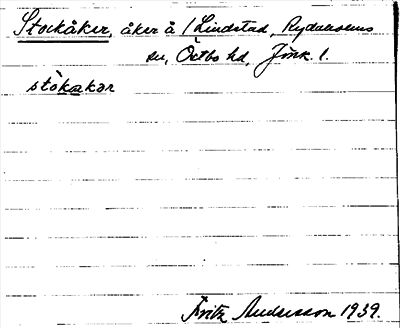 Stockåker, åker å 1 Lindstad, Rydaholms
sn, Östbo hd, Jönk. l.
stòkakər
Fritz Andersson 1939.